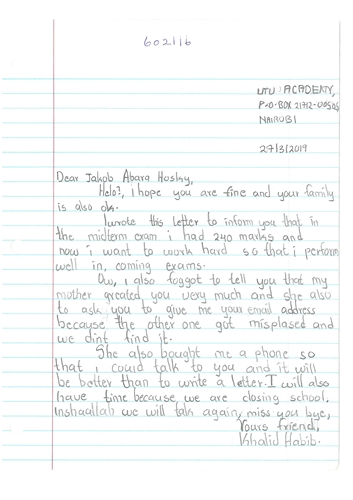 602116
UTU ACADEMY,
P-O-BOX 21712-00505
NAIROBI
27/3/2019
Dear Jakob Abara Hosky,
Helo?, i hope you are fine and your family
is also ok.
I wrote this letter to inform you that in
the midterm exam i had 240 marks and
now i want to work hard so that i perform
well in, coming exams.
Ow, i also foggot to tell you that my
mother greated you very much and she also
to ask you to give me your email address
because the other one got misplased and
we dint find it.
She also bought me a phone so
that i could talk to you and it will
be better than to write a letter. I will also
have time because, we are closing school,
inshaallah we will talk again, miss you bye,
Yours friend,
Khalid Habib.